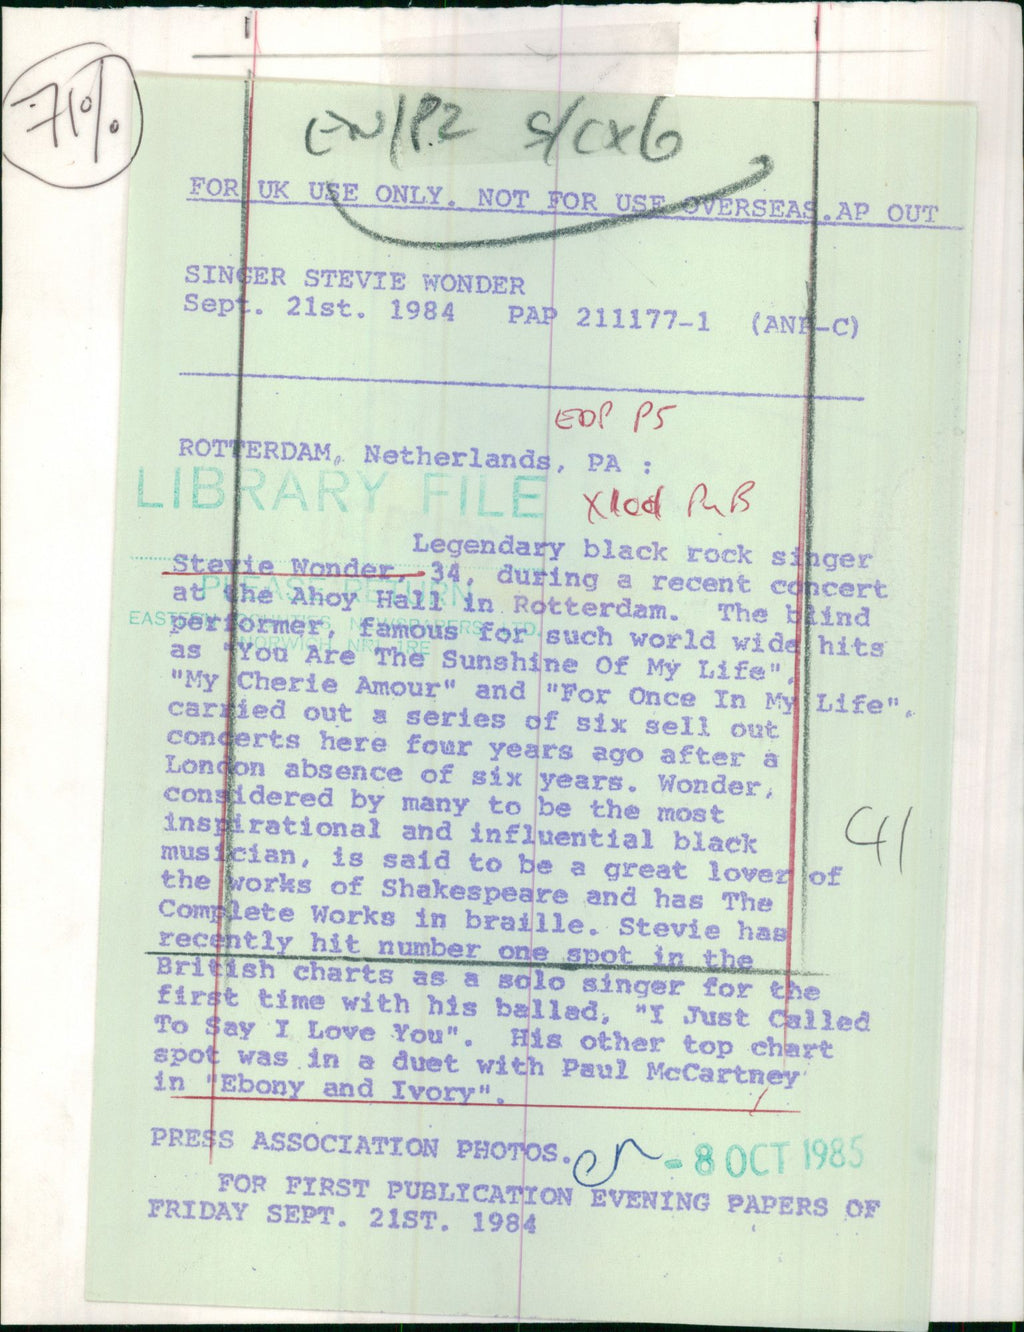 71%
EN/P2 S/CX6
FOR UK USE ONLY. NOT FOR USE OVERSEAS. AP OUT
SINGER STEVIE WONDER
Sept. 21st. 1984 PAP 211177-1 (ANP-C)
EDP P5
ROTTERDAM, Netherlands, PA :
LIBRARY FILE
Legendary black rock singer
Stevie Wonder, 34, during a recent concert
PLEASE RETURN
at the Ahoy Hall in Rotterdam. The blind
EASTERN COUNTIES NEWSPAPERS LTD.
performer, famous for such world wide hits
NORWICH NR1 1RE
as "You Are The Sunshine Of My Life",
"My Cherie Amour" and "For Once In My Life".
carried out a series of six sell out
concerts here four years ago after a
London absence of six years. Wonder,
considered by many to be the most
inspirational and influential black
musician, is said to be a great lover of
the works of Shakespeare and has The
Complete Works in braille. Stevie has
recently hit number one spot in the
British charts as a solo singer for the
first time with his ballad, "I Just Called
To Say I Love You". His other top chart
spot was in a duet with Paul McCartney
in "Ebony and Ivory".
PRESS ASSOCIATION PHOTOS.
- 8 OCT 1985
FOR FIRST PUBLICATION EVENING PAPERS OF
FRIDAY SEPT. 21ST. 1984